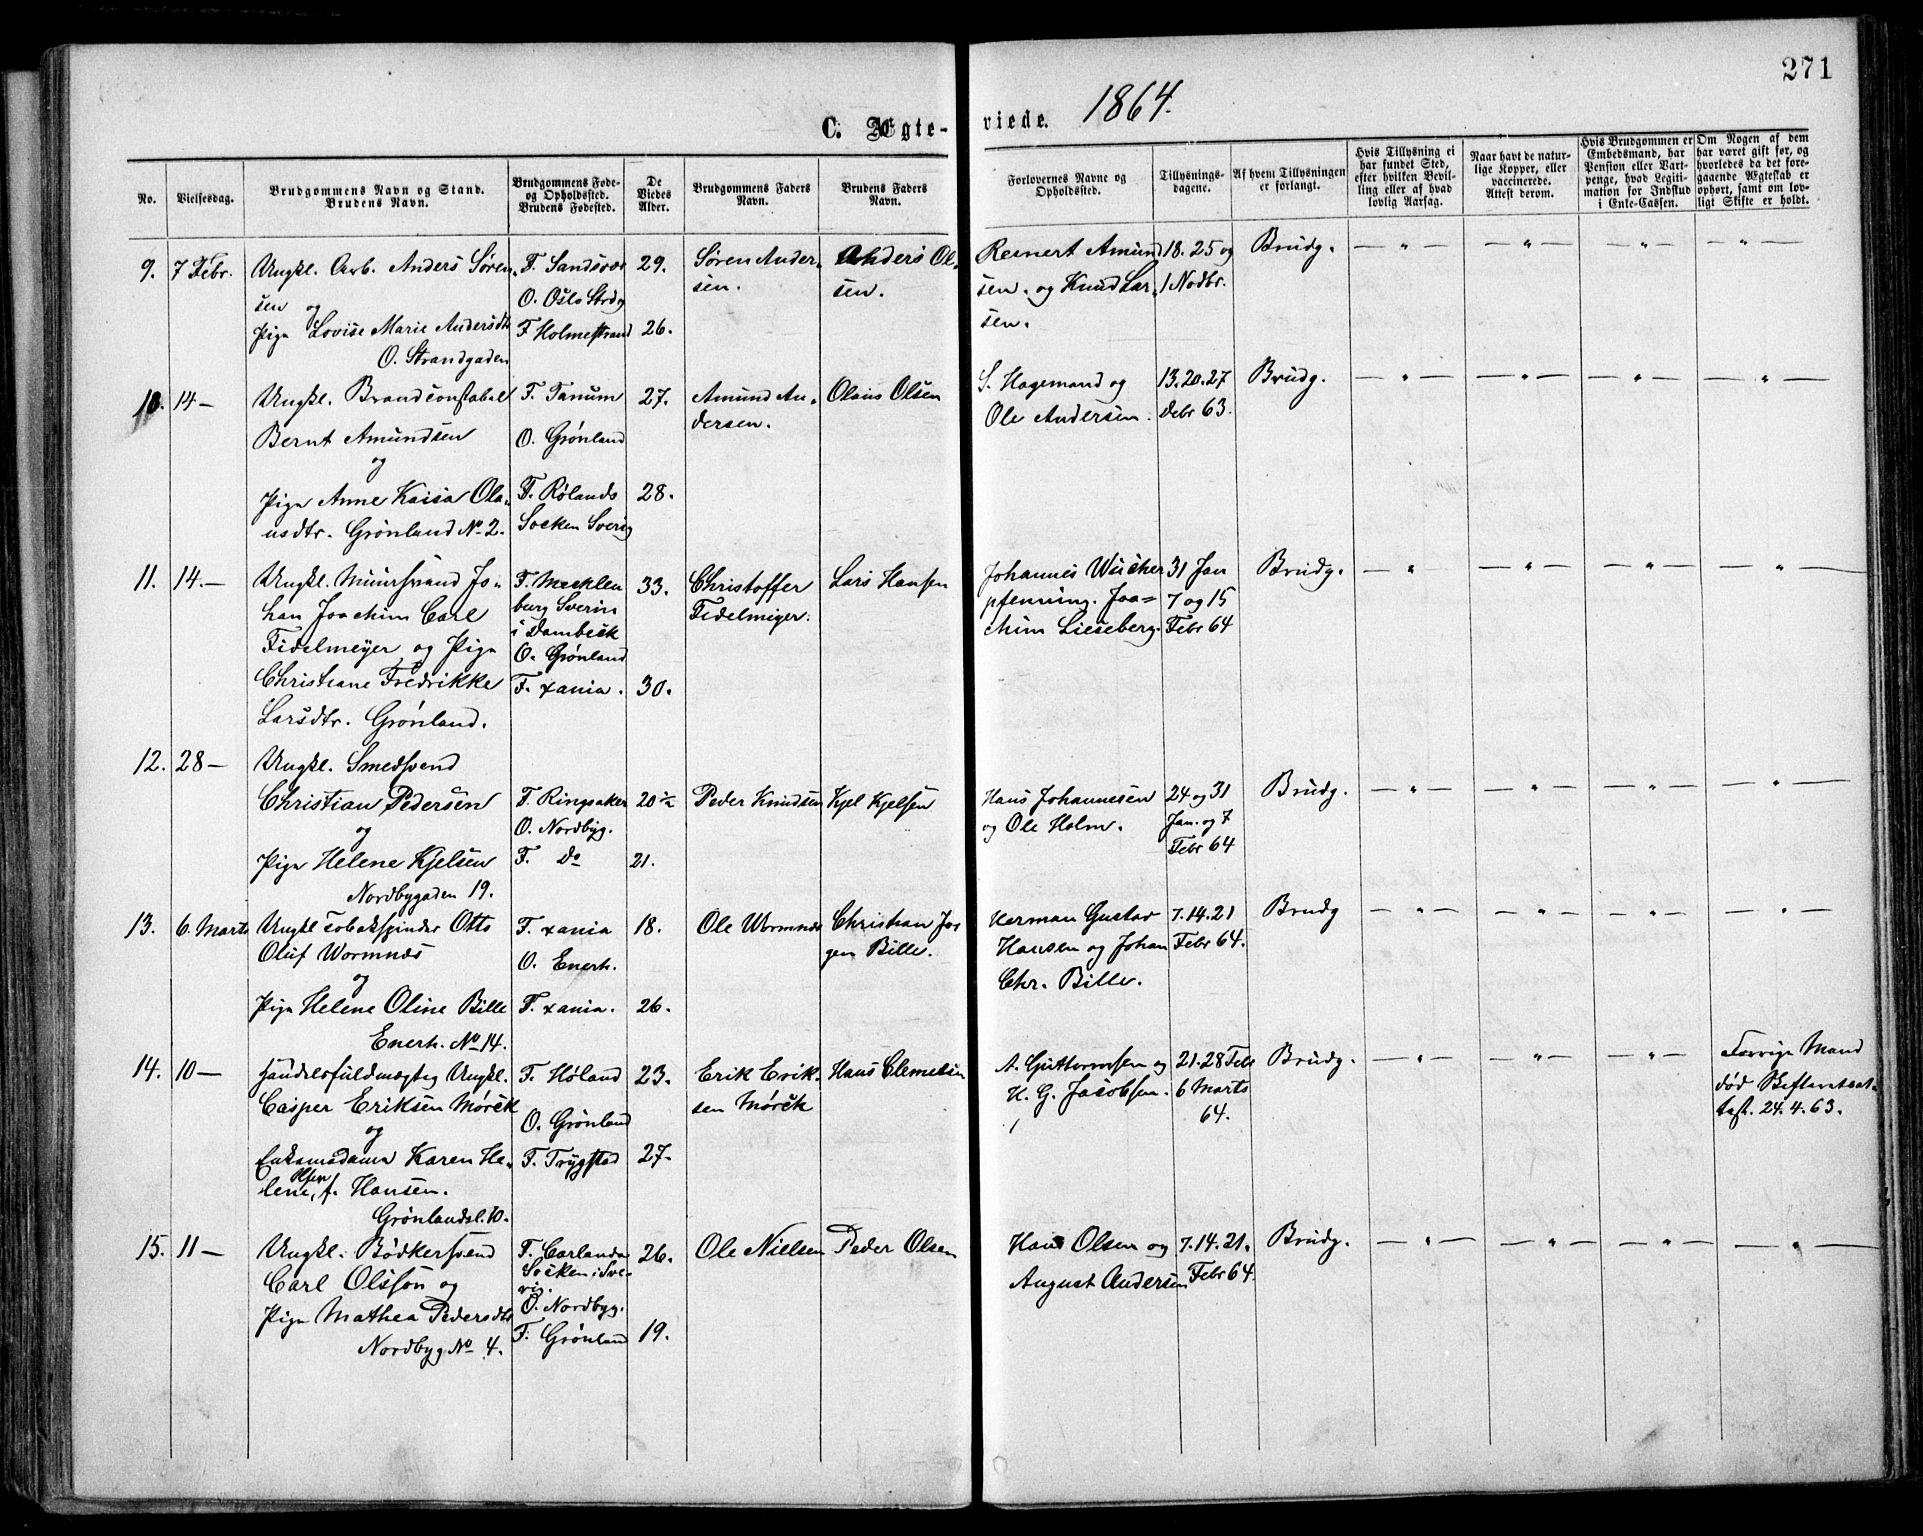 271
C. Ægte-
viede.
1864.
No.
Vielsesdag.
Brudgommens Navn og Stand.
Brudens Navn.
Brudgommens Føde-
og Opholdssted.
Brudens Fødested.
De
Viedes
Alder.
Brudgommens Faders
Navn.
Brudens Faders
Navn.
Forlovernes Navne og
Opholdssted.
Tillysnings-
dagene.
Af hvem Tillysningen
er forlangt.
Hvis Tillysning ei
har fundet Sted,
efter hvilken Bevil-
ling eller af hvad
lovlig Aarsag.
Naar havt de natur-
lige Kopper, eller
vaccinerede.
Attest derom.
Hvis Brudgommen er
Embedsmand, har
Pension eller Vart-
penge, hvad Legiti-
mation for Indskud
i Enke-Cassen.
Om Nogen af dem
har været gift før, og
hvorledes da det fore-
gaaende Ægteskab er
ophørt, samt om lov-
ligt Skifte er holdt.
9. 7 Febr. Ungkl. Arb. Anders Søren-
sen og
Pige Lovise Marie Andersdtr
O. Strandgaden
F. Sandsvær
O. Oslo Strdg
F Holmestrand
29.
26.
Søren Ander-
sen.
Anders Ol-
sen.
Reinert Amund
sen. og Knud Lar-
sen.
18. 25 og
1 Novbr.
Brudg. — „ — — „ — — „ — — „ —
10. 14 — Ungkl. Brandconstabel
Bernt Amundsen
og
Pige Anne Kaisa Ola-
usdtr. Grønland No 2.
F. Tanum
O. Grønland
F. Rølands
Socken Sverig
27.
28.
Amund An-
dersen.
Olaus Olsen
S. Hagemand og
Ole Andersen.
13. 20. 27
Debr 63.
Brudg. — „ — — „ — — „ — — „ —
11. 14. — Ungkl. Muursvend Jo-
han Joachim Carl
Fidelmeyer og Pige
Christiane Fredrikke
Larsdtr. Grønland.
F. Mecklen
burg Sverin
i Dambeck
O. Grønland
F. xania.
33.
30.
Christoffer
Fidelmeiger.
Lars Hansen
Johannes Wücher
pfenning. Joa-
chim Lieseberg.
31 Jan
7 og 15
Febr 64
Brudg. — „ — — „ — — „ — — „ —
12. 28 — Ungkl. Smedsvend
Christian Pedersen
og
Pige Helene Kjelsen
Nordbygaden 19.
F. Ringsaker
O. Nordbyg.
F. Do
20 ½
21.
Peder Knudsen
Kjel Kjelsen
Hans Johannesen
og Ole Holm.
24 og 31
Jan. og 7
Febr 64
Brudg. — „ — — „ — — „ — — „ —
13. 6. Marts Ungkl Tobakspinder Otto
Oluf Wormnæs
og
Pige Helene Oline Bille
Enerh. No 14.
F. xania
O. Enerh.
F. xania.
18.
26.
Ole Wormnæs
Christian Jør
gen Bille.
Herman Gustav
Hansen og Johan
Chr. Bille.
7. 14. 21
Febr 64.
Brudg — „ — — „ — — „ — — „ —
14. 10 — Handelsfuldmægtig Ungkl.
Casper Eriksen Mørck
og
Enkemadame Karen He-
Olsen
lene, f. Hansen.
Grønlandsl. 10.
F. Høland
O. Grønland
F. Trygstad
23.
27.
Erik Erik-
sen Mørck
Hans Clemetsen
A. Guttormsen og
H. G. Jacobsen.
21. 28 Feb
6 Marts
64.
Brudg. — „ — — „ — — „ —
Forrige Mand
død Skifteretsat-
test. 24. 4. 63.
15. 11 — Ungkl. Bødkersvend
Carl Olsson og
Pige Mathea Pedersdtr
Nordbyg No 4.
F. Carlanda
Socken i Sve-
rig.
O. Nordbyg.
F. Grønland
26.
19.
Ole Nielsen
Peder Olsen
Hans Olsen og
August Andersen
7. 14. 21.
Febr 64.
Brudg. — „ — — „ — — „ — — „ —